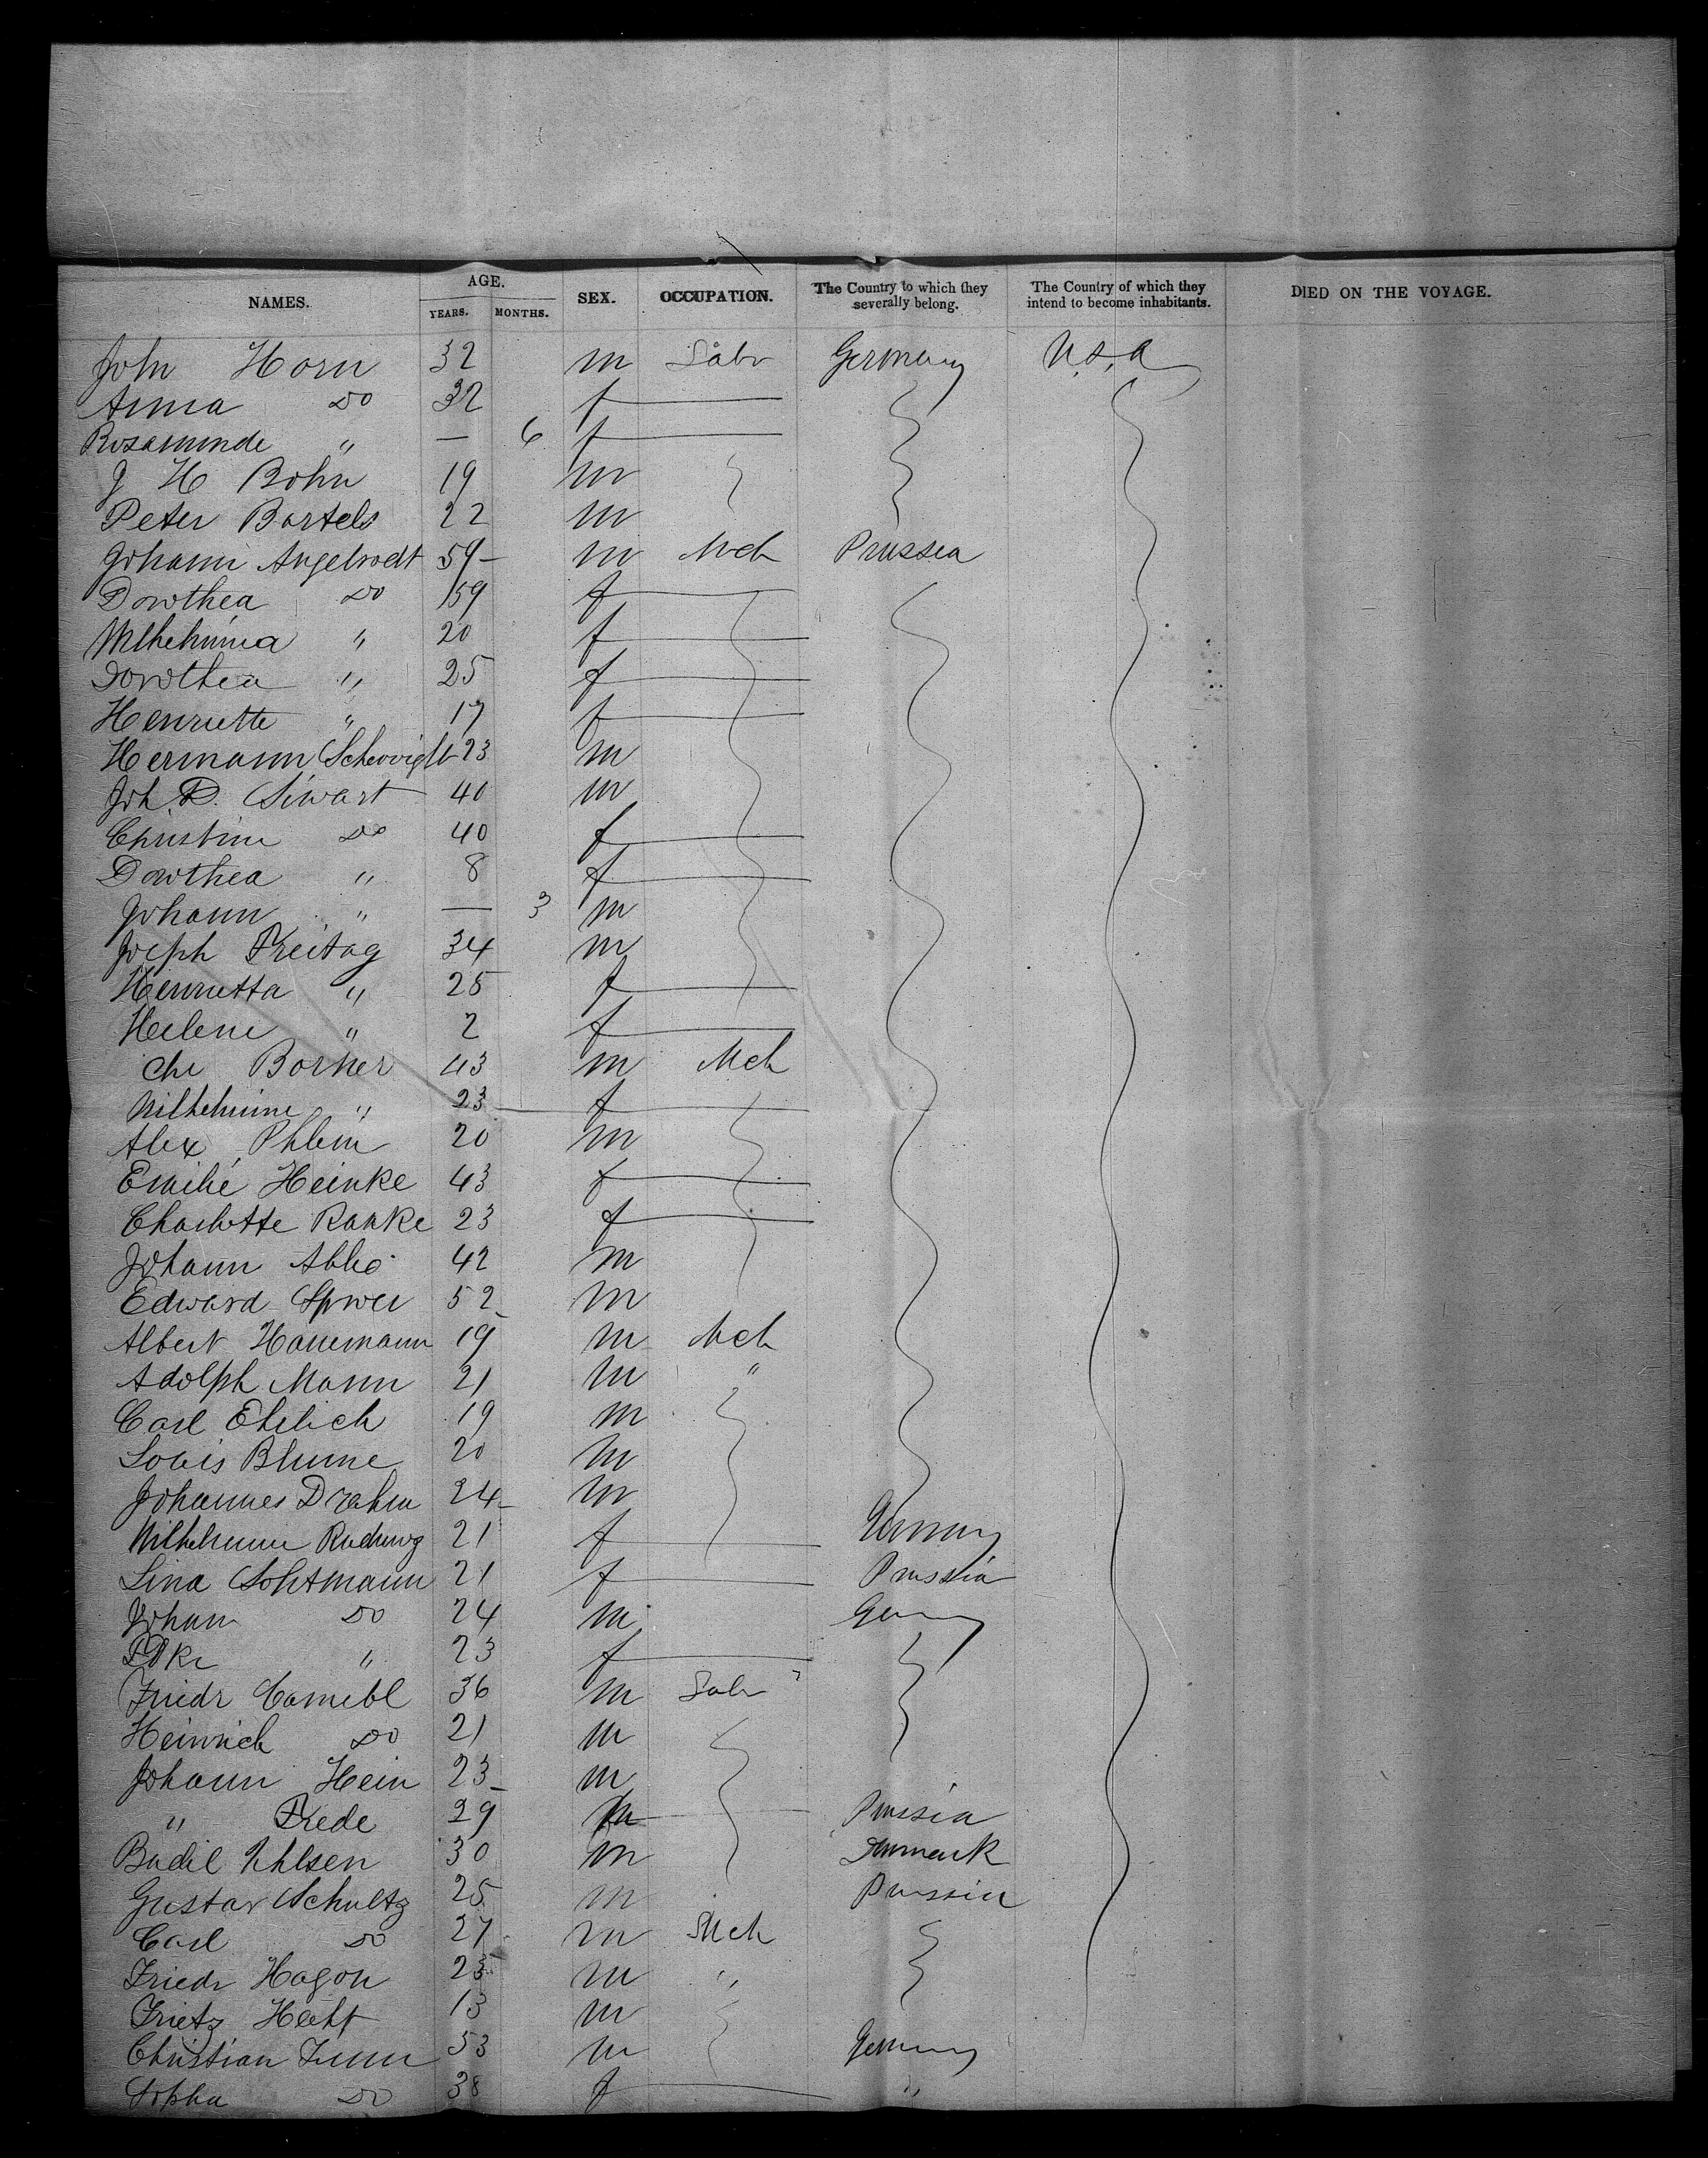 NAMES. AGE. SEX. OCCUPATION. The Country to which they severally belong. The Country of which they intend to become inhabitants. DIED ON THE VOYAGE.
YEARS. MONTHS.
John Horn 32 m Labr Germany U.S.A
Anna Do 32 f
Rosaminde " — 6 f
J H Bohn 19 m
Peter Bartels 22 m
Johann Angelrodt 59 m Mch Prussia
Dorothea Do 59 f
Wilhelmina " 20 f
Dorothea " 25 f
Henriette " 17 f
Hermann 23 m
Joh. D. Siwart 40 m
Christine Do 40 f
Dorothea " 8 f
Johann " — 3 m
Joseph Freitag 34 m
Henrietta " 25 f
Helene " 2 f
Chr Borner 43 m Mch
Wilhelmine " 23 f
Alex Phlem 20 m
Emilie Heinke 43 f
Charlotte Ranke 23 f
Johann 42 m
Edward 52 m
Albert Hanemann 19 m Mch
Adolph Mann 21 m "
Carl Ehlich 19 m
Louis Blume 20 m
Johannes Drahm 24 m
Wilhelmine 21 f Germany
Lina Sohtmann 21 f Prussia
Johann Do 24 m Germany
" 23 f
Friedr 36 m Labr "
Heinrich Do 21 m
Johann Hein 23 m
" Frede 29 m Prussia
Bodil Uhlsen 30 m Denmark
Gustav Schultz 25 m Prussia
Carl Do 27 m Mch
Friedr Hagon 23 m "
Frietz Heht 13 m
Christian 53 m Germany
Sopha Do 38 f "